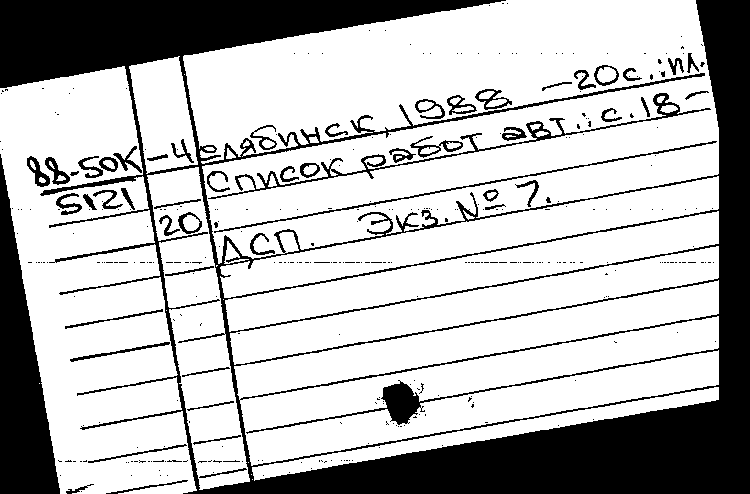 88-50К
5121
—Челябинск, 1988. —20с.: ил.
Список работ авт.: с.18—
20.
ДСП. Экз. № 7.